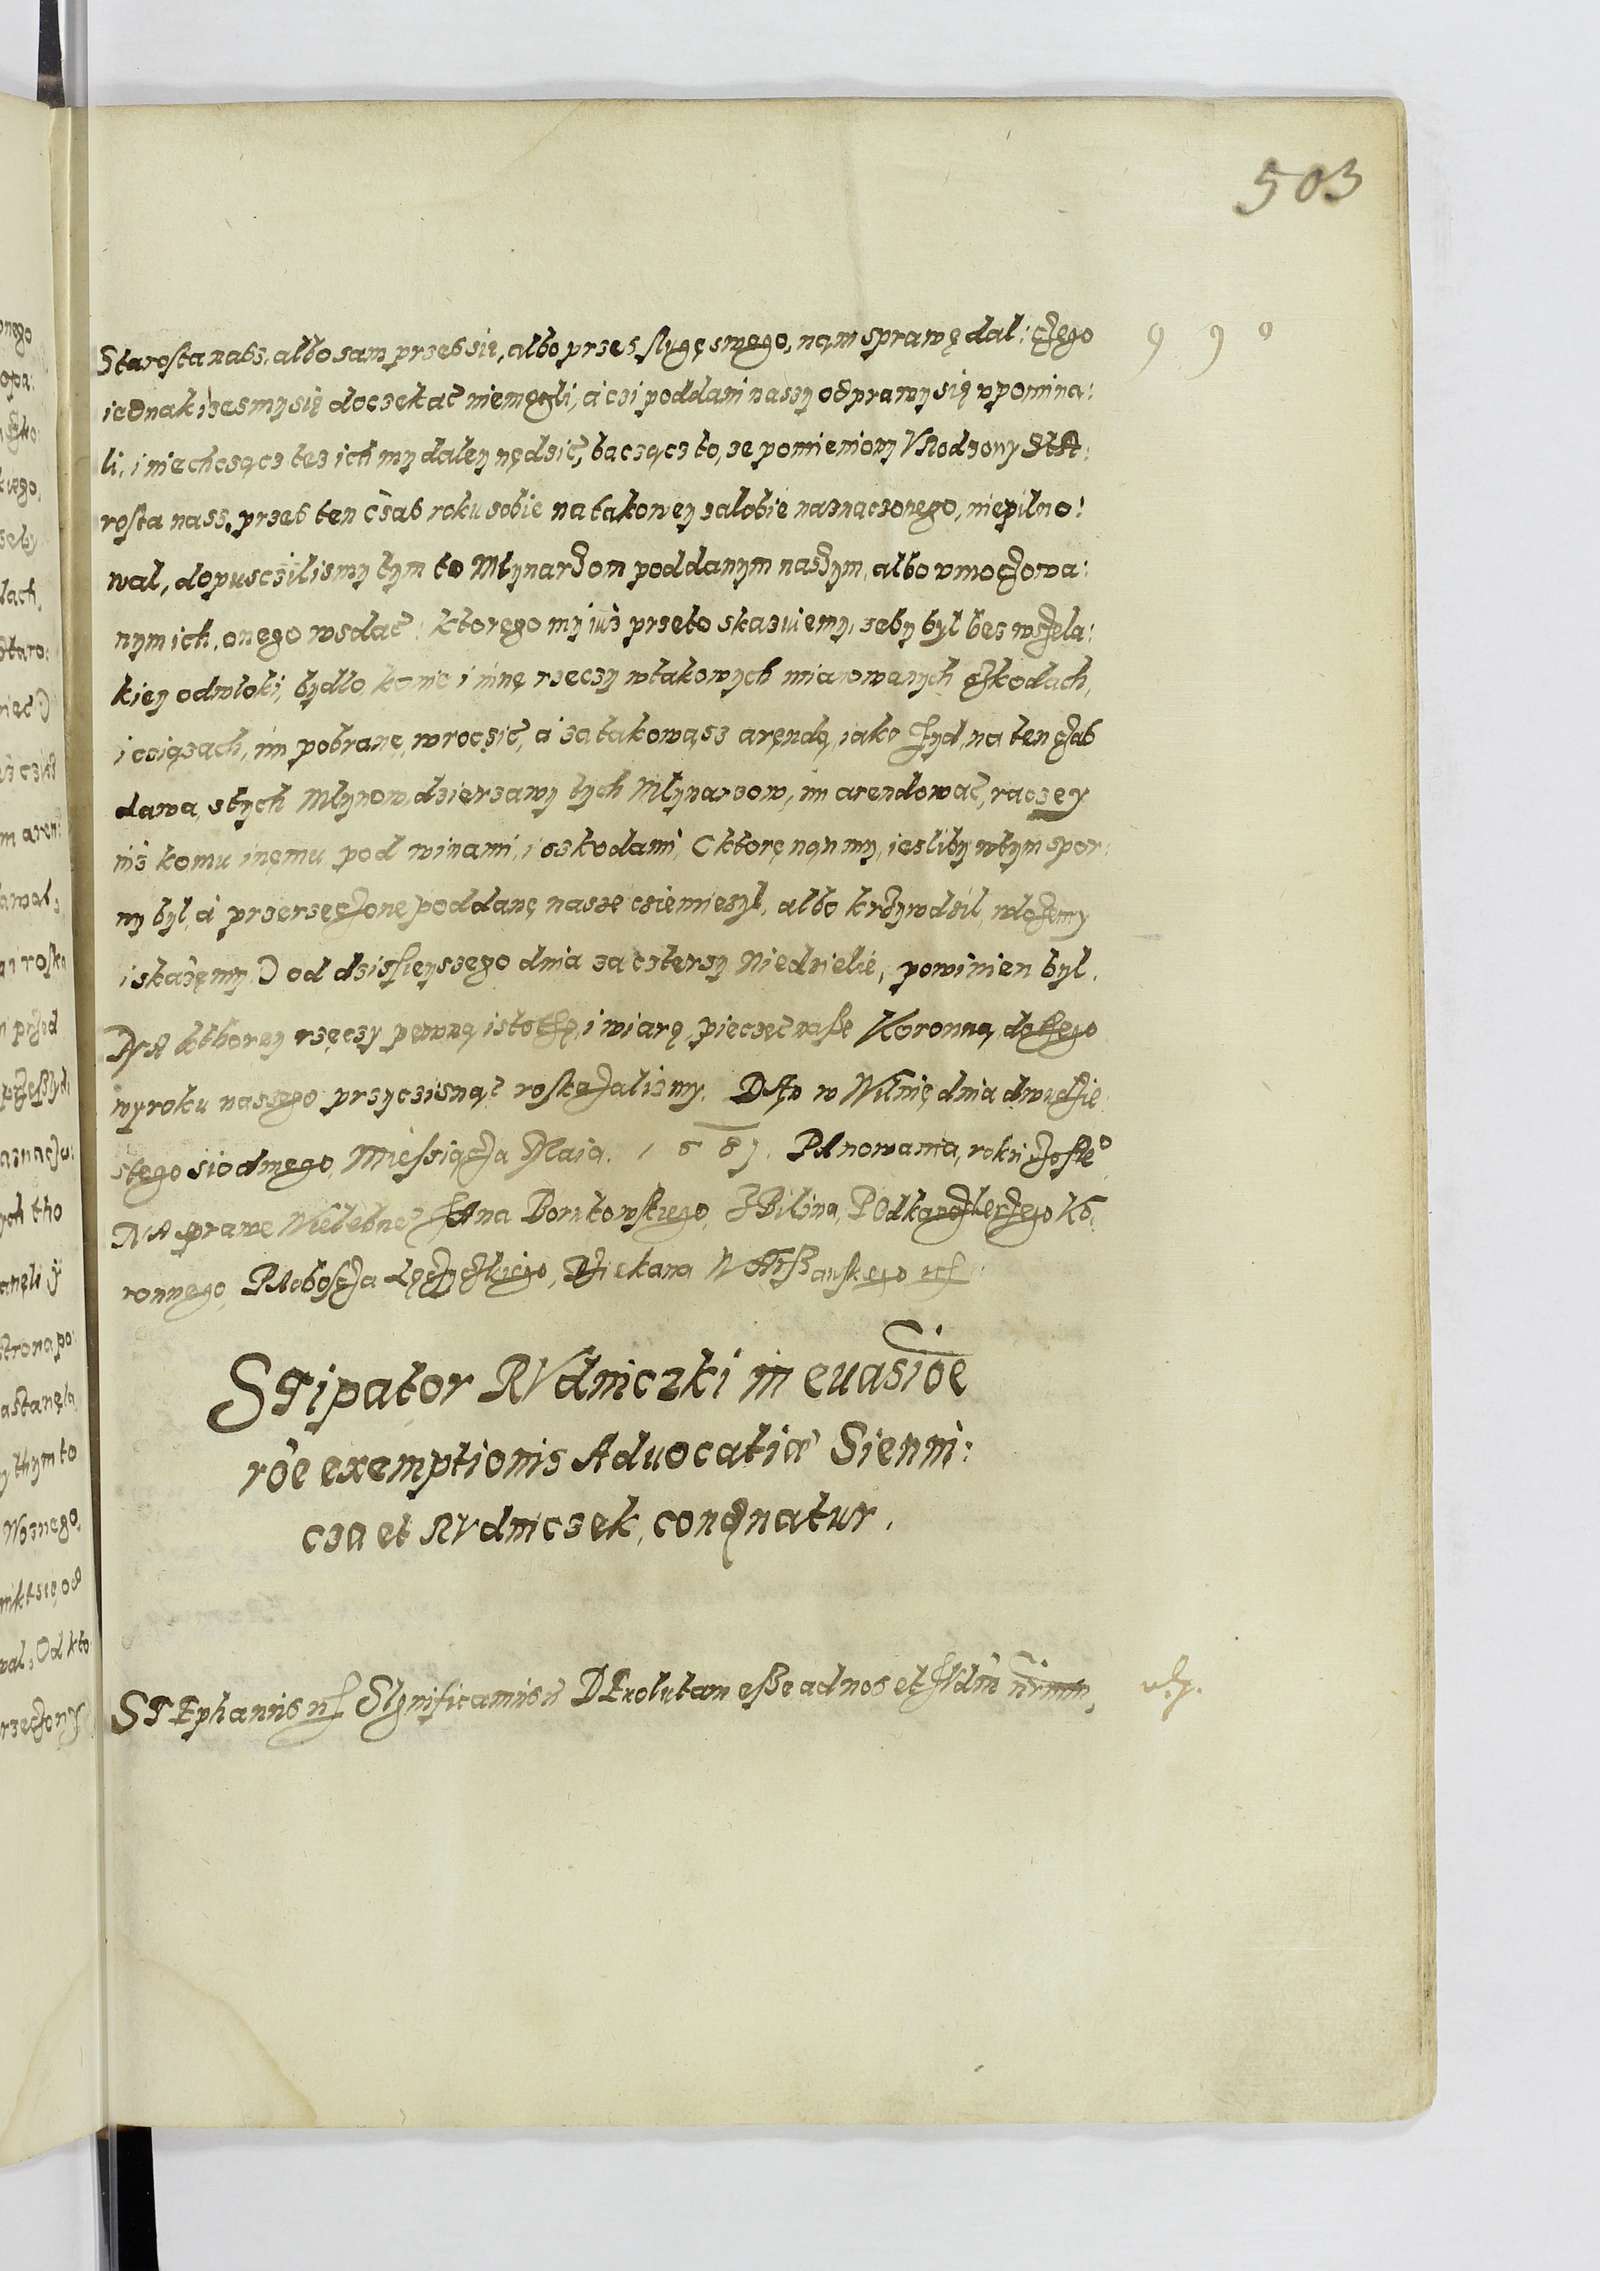 503
Starosta nass, albo sam przes sie, albo przes slugę swego, nąm sprawę dal: cżego
iednak izesmy się docżekać niemogli, á czi poddani nassy odprawy się vpomina:
li, i niechcząc tez ich my daley nędzić, bacząc to, ze pomieniony Vrodzony Sta:
rosta nass, przes ten czas roku sobie na takowey zalobie naznaczonego, niepilno:
wal, dopuscżilismy tym to Mlynarzom poddanym naszym, albo vmoczowa:
nym ich, onego wsdać: ktorego my iuż przeto skazuiemy, zeby byl bes wszela:
kiey odwloki, bydlo konie i inne rzeczy w takowych mianowanych szkodach,
i cziązach, im pobrane, wroczić, á za takowąsz arendę, iako Zyd, na ten czas
dawa, s tych Mlynow dzierzawy tych Mlynarzow, im arendowac, raczey
niż komu inemu pod winami, i szkodami, Które nąn my, iesliby w tym spor:
ny byl, á przerzeczone poddane nasze cziemiezyl, albo krzywdzil, wlożemy
i skażemy. Od dzisieyszego dnia za cztery Niedzielie, powinien byl.
NA kthorey rzeczy pewną istothę, i wiarę, pieczęć nasse Koronną, do tego
wyroku naszego przyczisnąć roskazalismy. DAn w Wilnię dnia dwudzie
stego siodmego, Miesiącza Maia. 1 5 8 1. PAnowania, roku szoste°
NA sprawe Wielebne° JAna Borukowskiego, Z Bilina, POdkanczlerzego Ko:
ronnego, PRobosza Łęczyczkiego, Dziekana WArssawskiego etc
STipator RVdniczki in euasioe
roe exemptionis Aduocatiæ Sienni:
cza et RVdniczek, condnatur.
STEphanus etc Significamus etc DEuolutam esse ad nos et Judm nrum,